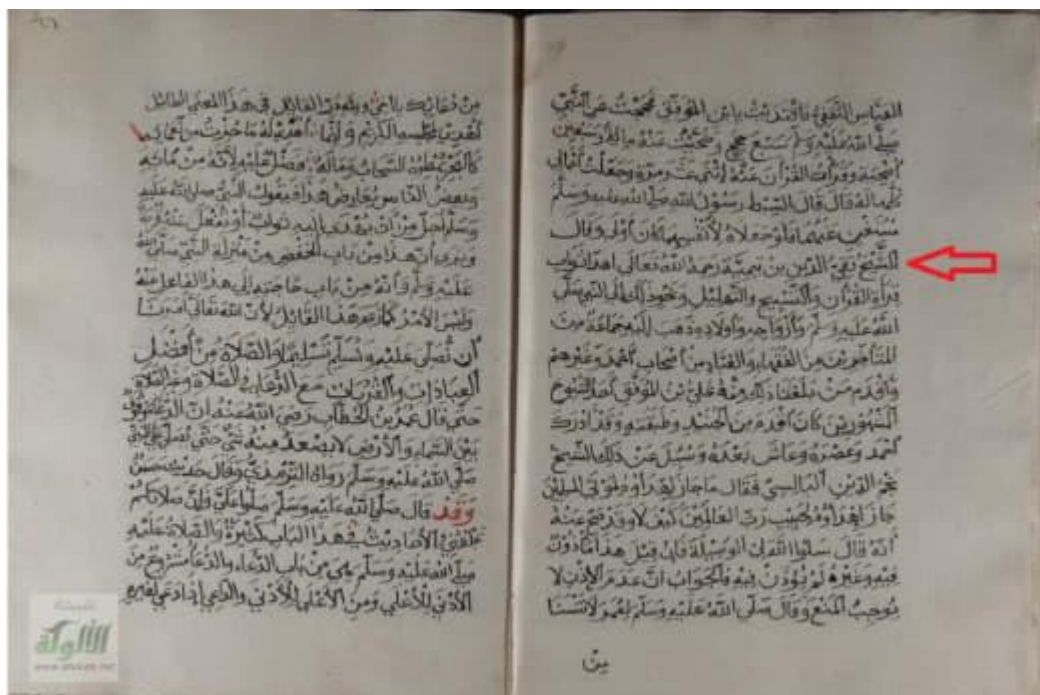 العباس الثقفي فاقتديت بابن الموفق فحججت عن النبي
صلى الله عليه وسلم سبع حجج وضحيت عنه مائة وسبعين
أضحية وقرأت القرآن عنه اثنتي عشرة وجعلت أعمالي
كلها له قال قال السبط رسول الله صلى الله عليه وسلم
مستغن عنها فلو جعلاه لأنفسهما كان أولى وقال
الشيخ تقي الدين بن تيمية رحمه الله تعالى اهدا ثواب
قرأة القرآن والتسبيح والتهليل ونحو ذلك الى النبي صلى
الله عليه وسلم وأزواجه وأولاده ذهب إليه جماعة من
المتأخرين من الفقهاء والعباد من أصحاب أحمد وغيرهم
وأقدم من بلغنا ذلك عنه علي بن الموفق أحد الشيوخ
المشهورين كان أقدم من الجنيد وطبقته وقد أدرك
أحمد وعصره وعاش بعده وسئل عن ذلك الشيخ
نجم الدين البالسي فقال ما جاز إهداؤه لموتى المسلمين
جاز إهداؤه لحبيب رب العالمين كيف لا وقد صح عنه
أنه قال سلوا الله لي الوسيلة فإن قيل هذا مأذون
فيه وغيره لم يؤذن فيه فالجواب ان عدم الإذن لا
يوجب المنع وقال صلى الله عليه وسلم لعمر لا تنسنا
من
من دعائك يا أخي ولله در القائل في هذا المعنى
كالبحر يمطره السحاب وماله فضل عليه لأنه من مائه
وبعض الناس يعارض هذا فيقول النبي صلى الله عليه
وسلم أجل من أن يهدى إليه ثواب أو تفعل عنه قربة
ويرى أن هذا من باب الخفض من منزلة النبي صلى الله
عليه وسلم فأنه من باب حاجته إلى هذا الفاعل عنه
وليس الأمر كما زعم هذا القائل لأن الله تعالى أمرنا
أن نصلي عليه ونسلم تسليما والصلاة من أفضل
العبادات والقربات مع الدعاء في الصلاة وغير الصلاة
حتى قال عمر بن الخطاب رضي الله عنه ان الدعا موقوف
بين السماء والأرض لا يصعد منه شيء حتى تصلى على النبي
صلى الله عليه وسلم رواه الترمذي وقال حديث حسن
وقد قال صلى الله عليه وسلم صلوا علي فإن صلاتكم
تبلغني الأحاديث في هذا الباب كثيرة والصلاة عليه
صلى الله عليه وسلم هي من باب الدعاء والدعا مشروع من
الأدنى للأعلى ومن الأعلى للأدنى والداعي إذا دعى لغيره
شبكة
الألوكة
www.alukah.net